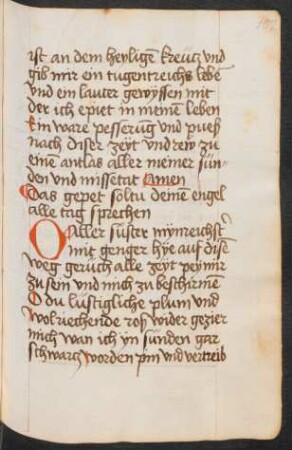 ist an dem heyligē kreucz vnd
gib mir ein tugentreichs lebē
vnd ein lauter gewyssen mit
der ich epiet in meinem leben
Ein ware pesserūg vnd pueß
nach diser zeyt vnd rew zu
einē antlas aller meiner sün-
den vnd missetat Amen
Das gepet soltu deinē engel
alle tag sprechen
O aller süster mynreichst̄
mit genger hye auf disē
weg geruch alle zeyt pey mir
zu sein vnd mich zu beschirmē
O du lustigliche plum vnd
wolriechende ros wider gezier
mich wan ich yn sunden gar
schwartz worden pin vnd vertreib